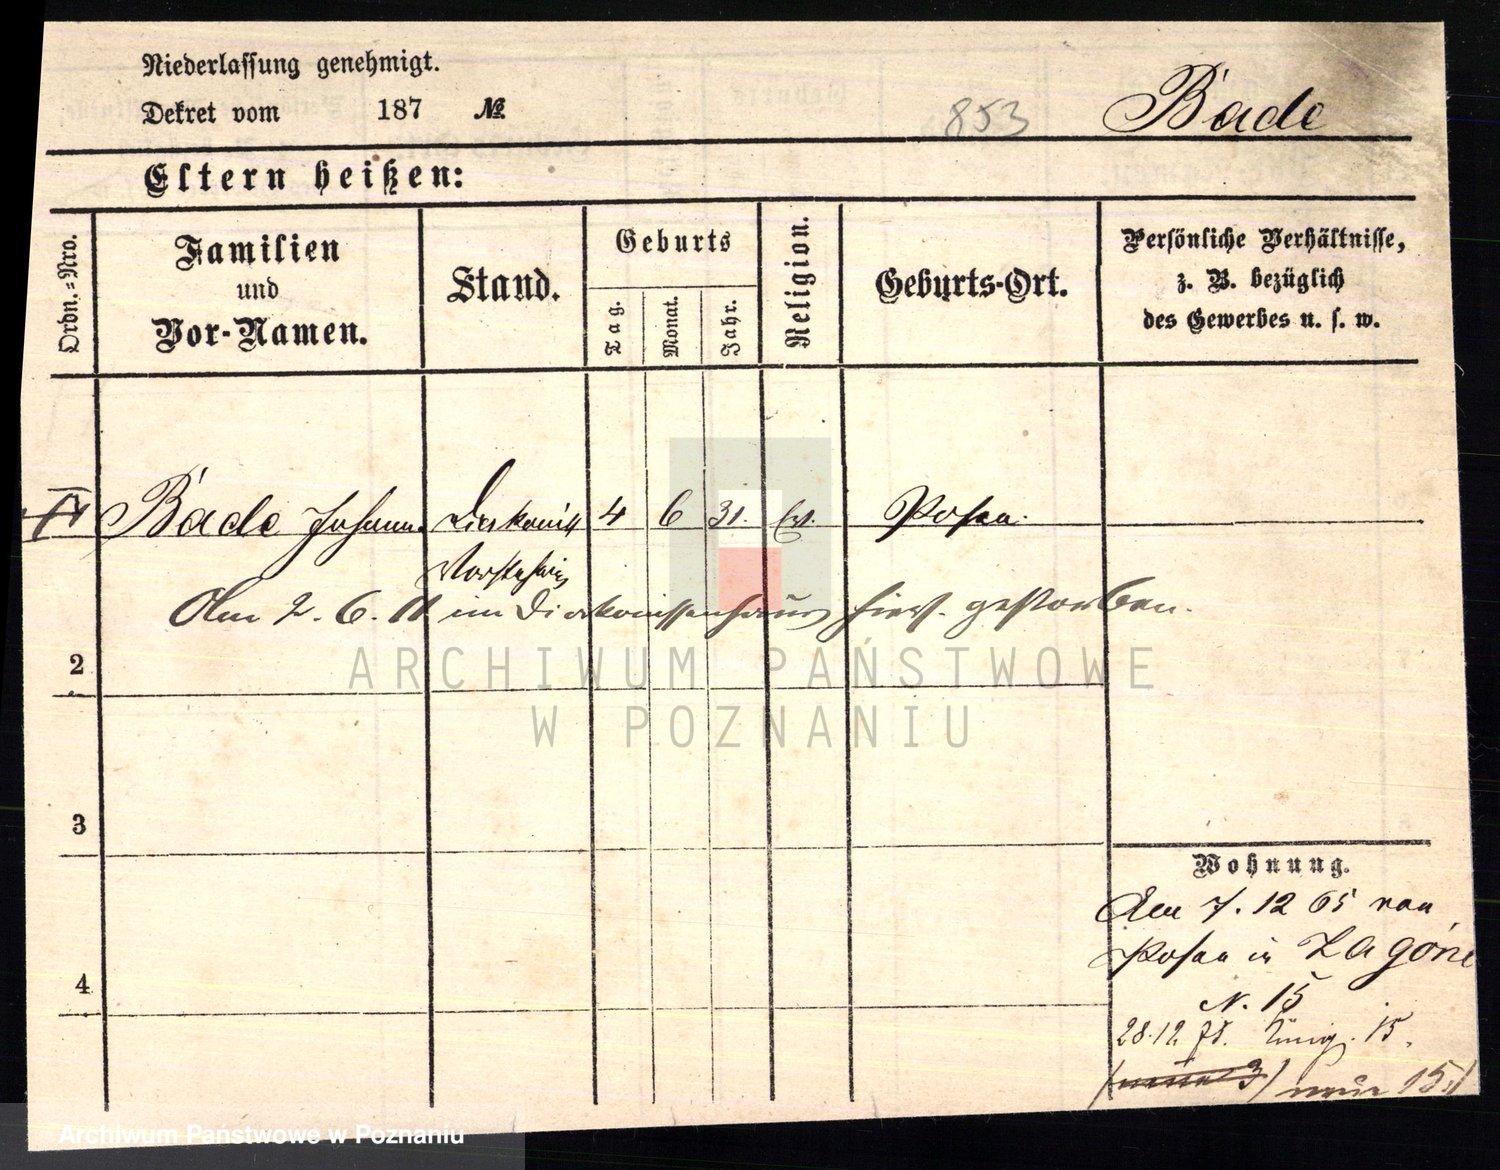 Niederlassung genehmigt.
Dekret vom 187 №
853
Bade
Eltern heißen:
Ordn.=Nro.
Familien
und
Vor-Namen.
Stand.
Geburts
Tag.
Monat.
Jahr.
Religion.
Geburts-Ort.
Persönliche Verhältnisse,
z. B. bezüglich
des Gewerbes u. s. w.
Bade Johann 4 6 31. Ev. Posen.
Vorsteherin
Am 2. 6. im Diakonissenhaus hies. gestorben.
2
3
4
Wohnung.
Am 7. 12 65 von
Posen in Zagórze
N. 15
28.12. König. 15.
neue 15
ARCHIWUM PAŃSTWOWE
W POZNANIU
Archiwum Państwowe w Poznaniu